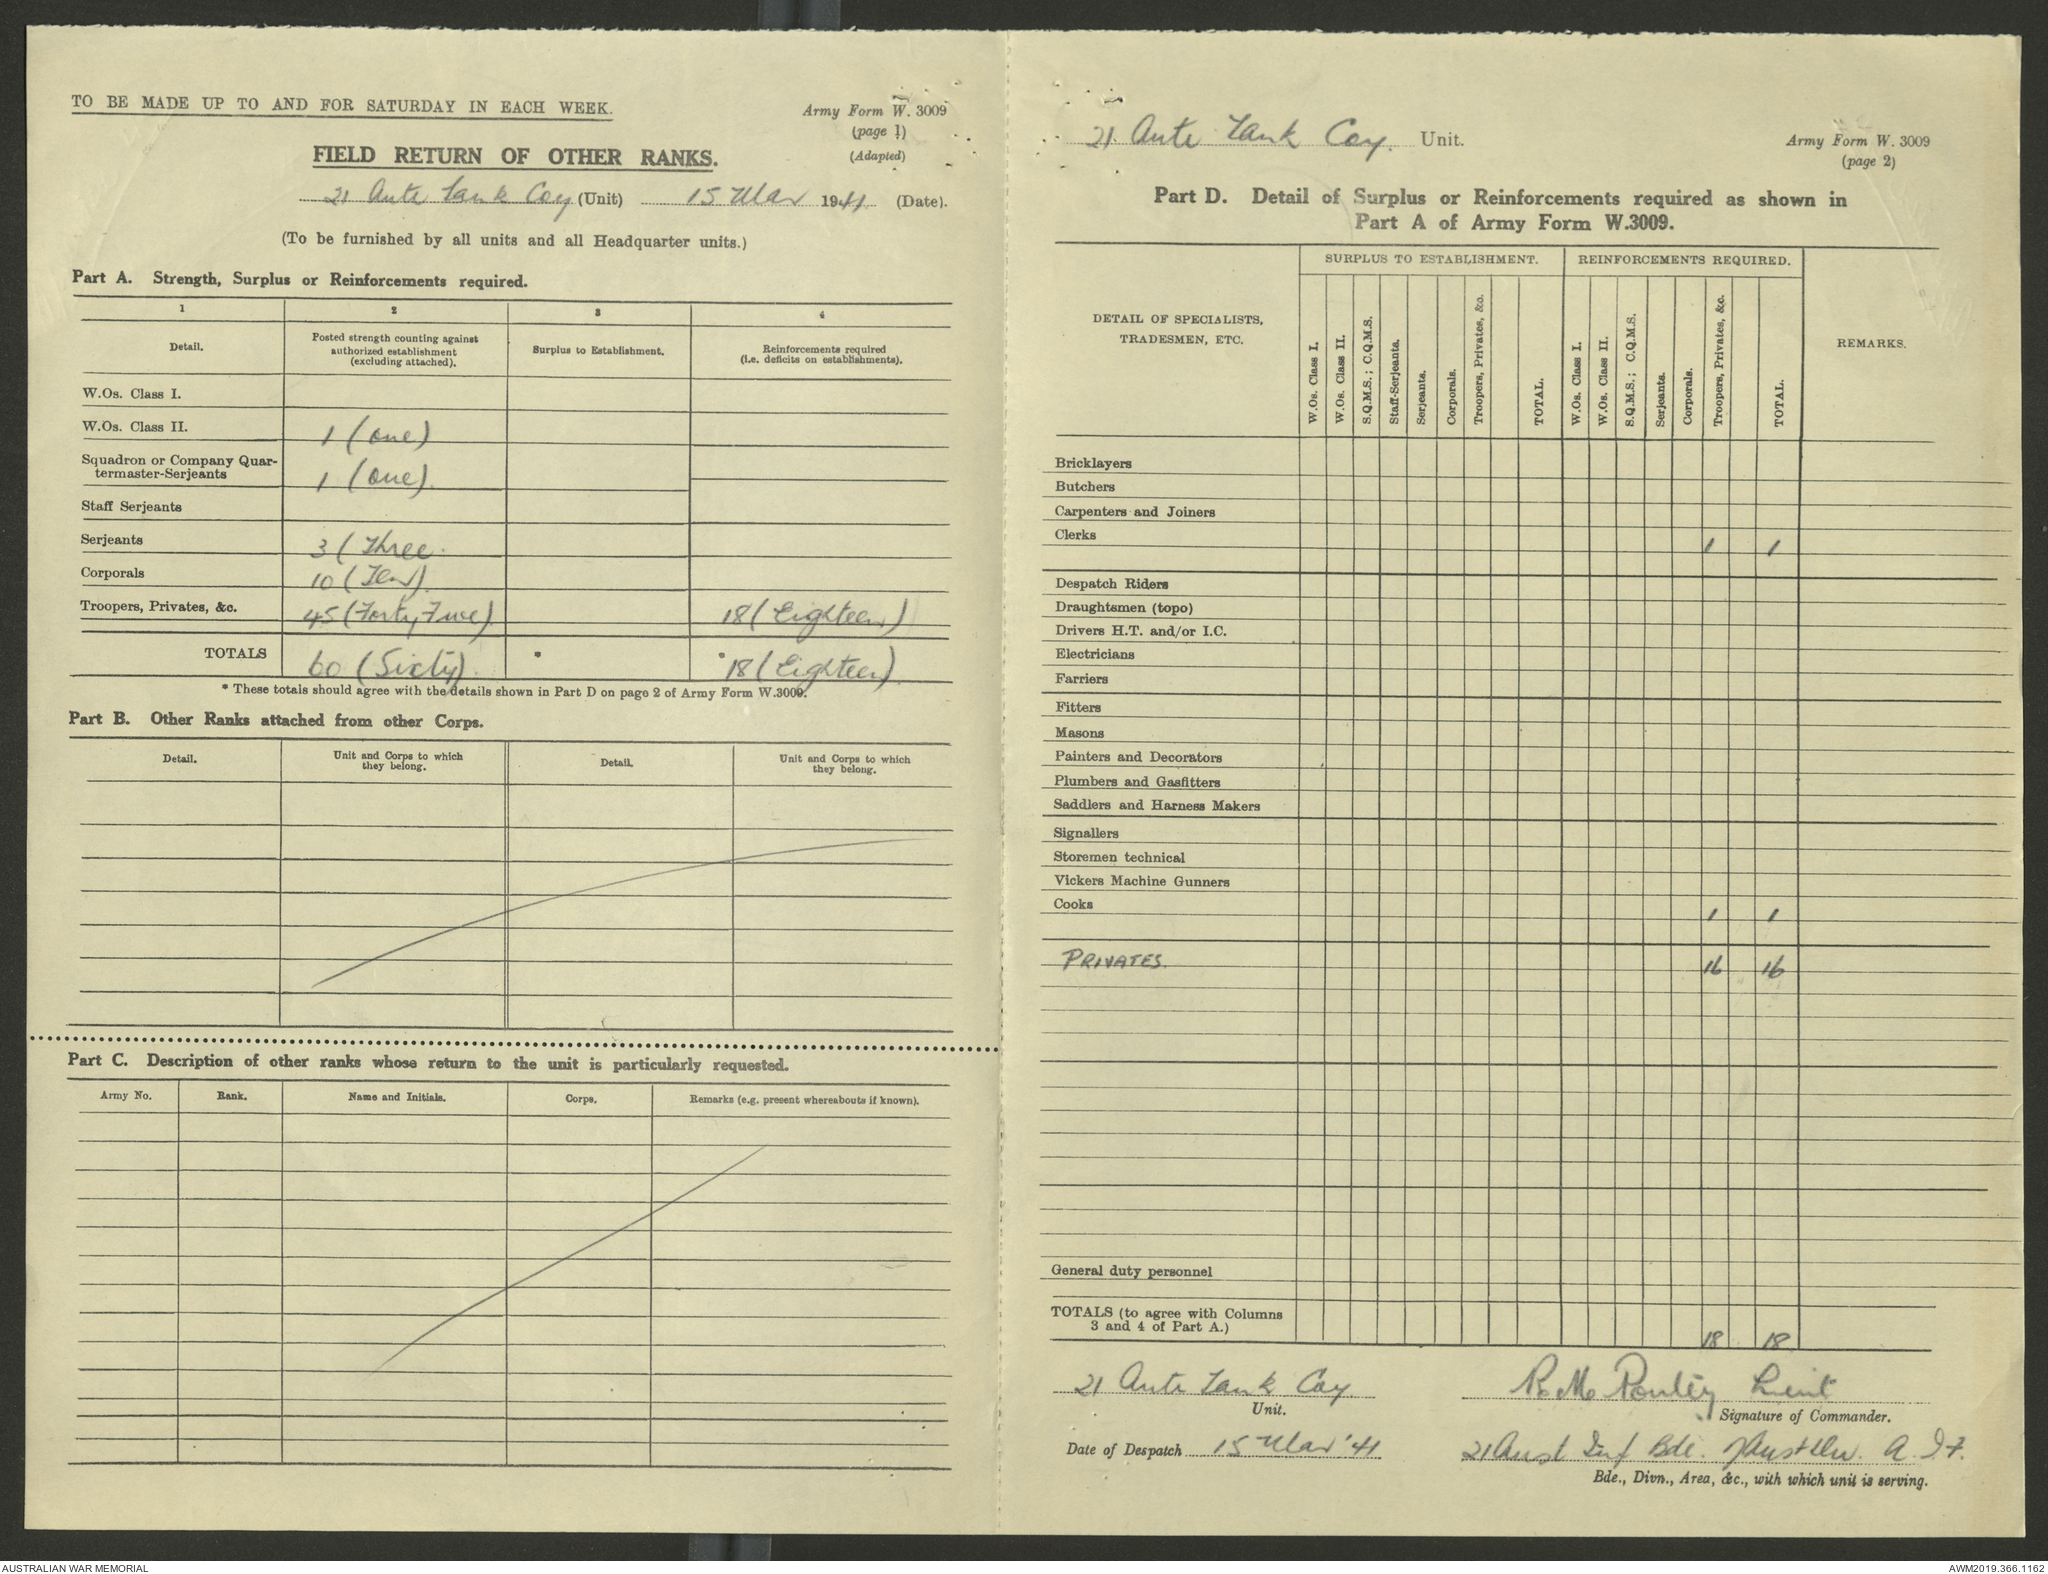 TO BE MADE UP TO AND FOR SATURDAY IN EACH WEEK.
Army Form W. 3009
(page 1)
(Adapted)
FIELD RETURN OF OTHER RANKS.
21 Ante Tank Coy (Unit) 15 Mar 1941 (Date).
(To be furnished by all units and all Headquarter units.)
Part A. Strength, Surplus or Reinforcements required.
1 2 3 4
Detail. Posted strength counting against authorized establishment (excluding attached). Surplus to Establishment. Reinforcements required (i.e. deficits on establishments).
W.Os. Class I.
W.Os. Class II. 1 (one)
Squadron or Company Quar-
termaster-Serjeants 1 (one).
Staff Serjeants
Serjeants 3 (Three.
Corporals 10 (Ten).
Troopers, Privates, &c. 45 (Forty, Five) 18 (Eighteen)
TOTALS 60 (Sixty). * * 18 (Eighteen).
* These totals should agree with the details shown in Part D on page 2 of Army Form W.3009.
Part B. Other Ranks attached from other Corps.
Detail. Unit and Corps to which they belong. Detail. Unit and Corps to which they belong.
Part C. Description of other ranks whose return to the unit is particularly requested.
Army No. Rank. Name and Initials. Corps. Remarks (e.g. present whereabouts if known).
21. Ante Tank Coy. Unit.
Army Form W. 3009
(page 2)
Part D. Detail of Surplus or Reinforcements required as shown in
Part A of Army Form W.3009.
DETAIL OF SPECIALISTS, TRADESMEN, ETC. SURPLUS TO ESTABLISHMENT. REINFORCEMENTS REQUIRED. REMARKS.
W.Os. Class I. W.Os. Class II. S.Q.M.S.; C.Q.M.S. Staff-Serjeants. Serjeants. Corporals. Troopers, Privates, &c. TOTAL. W.Os. Class I. W.Os. Class II. S.Q.M.S.; C.Q.M.S. Serjeants. Corporals. Troopers, Privates, &c. TOTAL.
Bricklayers
Butchers
Carpenters and Joiners
Clerks 1 1
Despatch Riders
Draughtsmen (topo)
Drivers H.T. and/or I.C.
Electricians
Farriers
Fitters
Masons
Painters and Decorators
Plumbers and Gasfitters
Saddlers and Harness Makers
Signallers
Storemen technical
Vickers Machine Gunners
Cooks 1 1
PRIVATES. 16 16
General duty personnel
TOTALS (to agree with Columns
3 and 4 of Part A.) 18 18
21 Ante Tank Coy
Unit.
Lieut
Signature of Commander.
Date of Despatch 15 Mar '41
21 Aust Inf Bde. A.I.F.
Bde., Divn., Area, &c., with which unit is serving.
AUSTRALIAN WAR MEMORIAL
AWM2019.366.1162